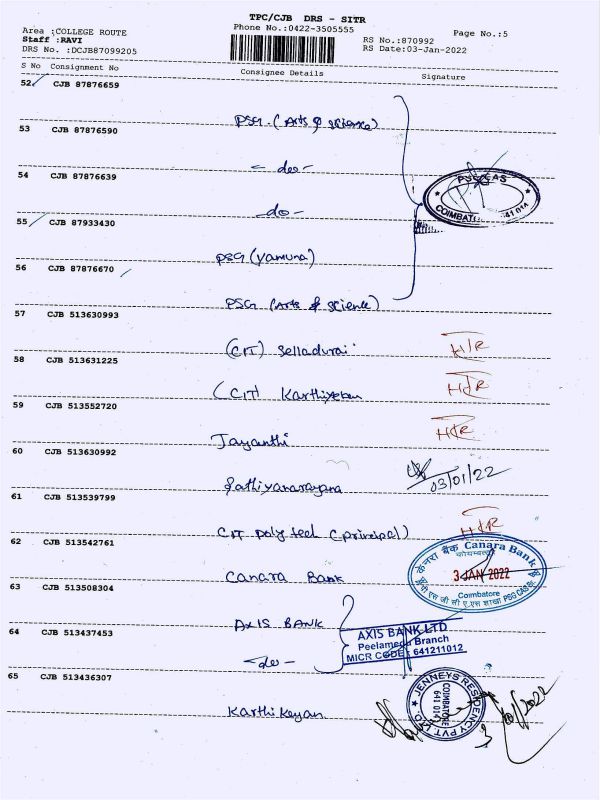 TPC/CJB DRS - SITR
Area :COLLEGE ROUTE
Phone No.:0422-3505555
Page No.:5
Staff :RAVI
RS No.:870992
DRS No. :DCJB87099205
RS Date:03-Jan-2022
S No Consignment No
Consignee Details
Signature
52. CJB 87876659
PSG (Arts & Science)
53 CJB 87876590
-do-
54 CJB 87876639
-do-
PSG CAS
COIMBATORE 641 014
55 CJB 87933430
PSG (Yamuna)
56 CJB 87876670
PSG (Arts & Science)
57 CJB 513630993
(CIT) Selladurai
H/R
58 CJB 513631225
(CIT) Karthikeban
H/R
59 CJB 513552720
Jayanthi
H/R
60 CJB 513630992
Sathiyanarayana
03/01/22
61 CJB 513539799
CIT Poly tech (principal)
H/R
62 CJB 513542761
Canara Bank
केनरा बैंक Canara Bank
कोयम्बत्तूर
3 JAN 2022
Coimbatore
पी एस जी सी ए.एस शाखा PSG CAS Br.
63 CJB 513508304
AXIS BANK
64 CJB 513437453
-do-
AXIS BANK LTD
Peelamedu Branch
MICR CODE : 641211012
65 CJB 513436307
Karthikeyan
JENNEYS RESIDENCY PVT. LTD.
COIMBATORE
641 015
3/01/2022